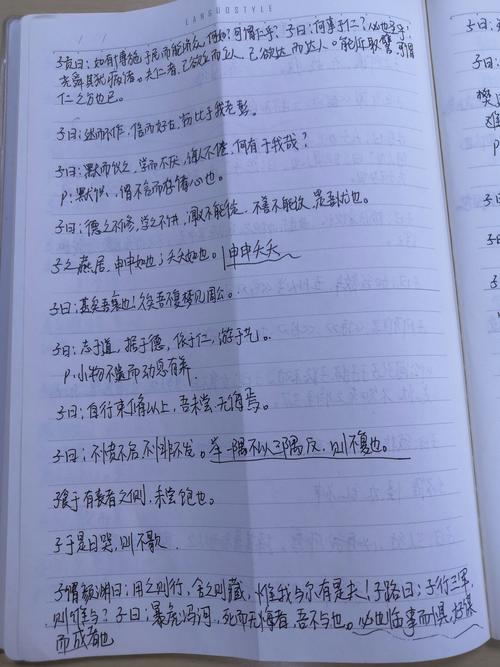 LANGUOSTYLE
子贡曰：如有博施于民而能济众，何如？可谓仁乎？子曰：何事于仁？必也圣乎！
尧舜其犹病诸。夫仁者，己欲立而立人，己欲达而达人。能近取譬，可谓
仁之方也已。
子曰：述而不作，信而好古，窃比于我老彭。
子曰：默而识之，学而不厌，诲人不倦，何有于我哉？
P：默识，谓不言而存诸心也。
子曰：德之不修，学之不讲，闻义不能徙，不善不能改，是吾忧也。
子之燕居，申申如也；夭夭如也。申申夭夭
子曰：甚矣吾衰也！久矣吾不复梦见周公。
子曰：志于道，据于德，依于仁，游于艺。
P：小物不遗而动息有养。
子曰：自行束脩以上，吾未尝无诲焉。
子曰：不愤不启，不悱不发。举一隅不以三隅反，则不复也。
子食于有丧者之侧，未尝饱也。
子于是日哭，则不歌
子谓颜渊曰：用之则行，舍之则藏，惟我与尔有是夫！子路曰：子行三军，
则谁与？子曰：暴虎冯河，死而无悔者，吾不与也。必也临事而惧，好谋
而成者也
子曰
子曰：
樊
难
子曰